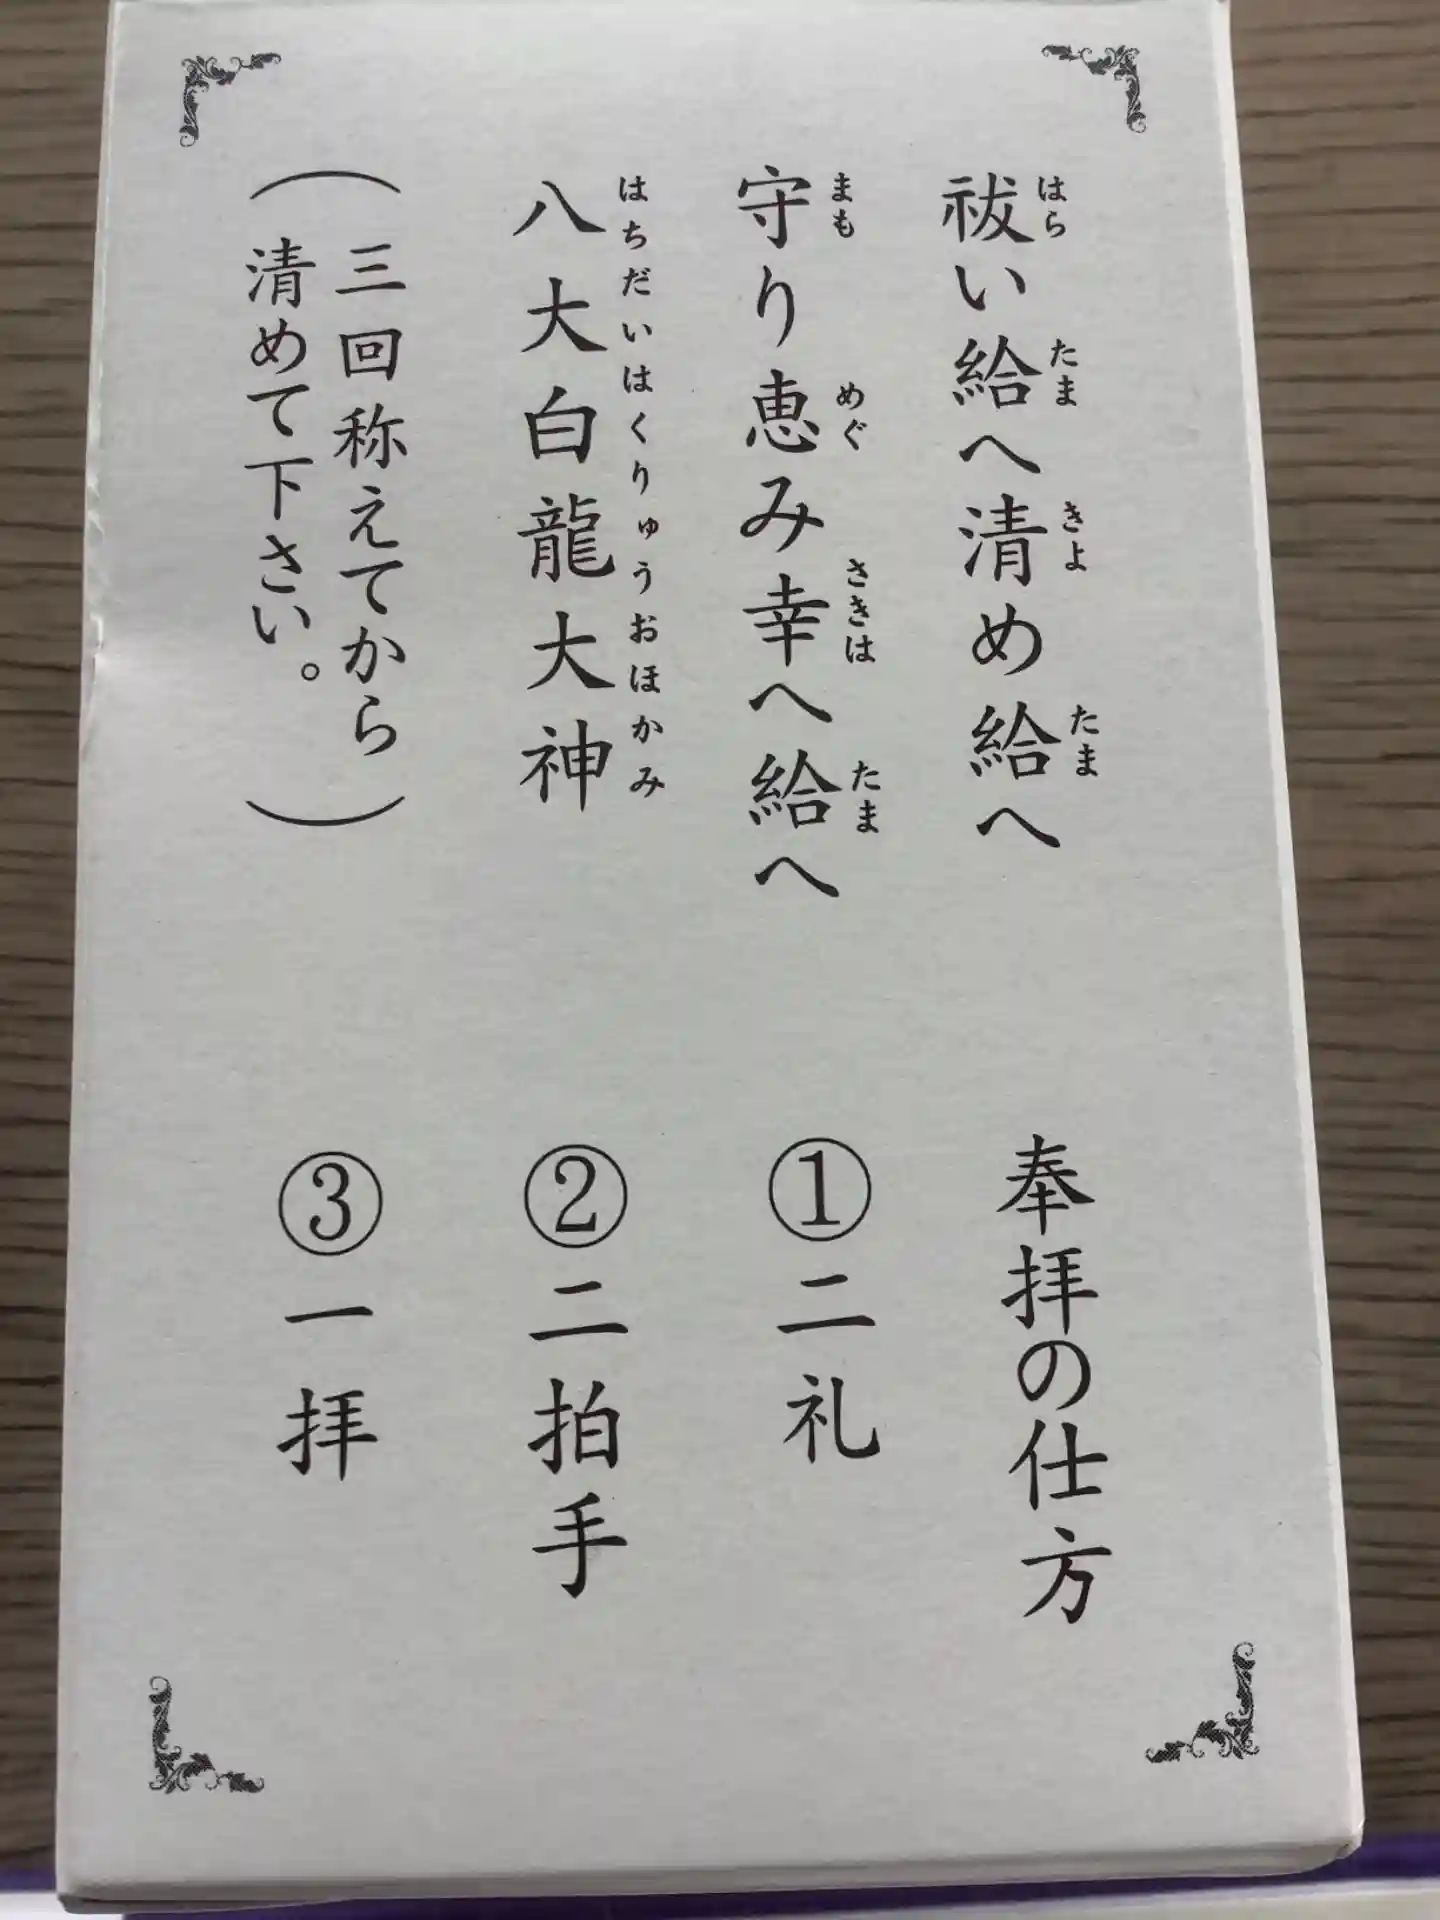 祓い給へ清め給へ
はら たま きよ たま
守り恵み幸へ給へ
まも めぐ さきは たま
八大白龍大神
はちだいはくりゅうおほかみ
（三回称えてから
清めて下さい。）
奉拝の仕方
①二礼
②二拍手
③一拝